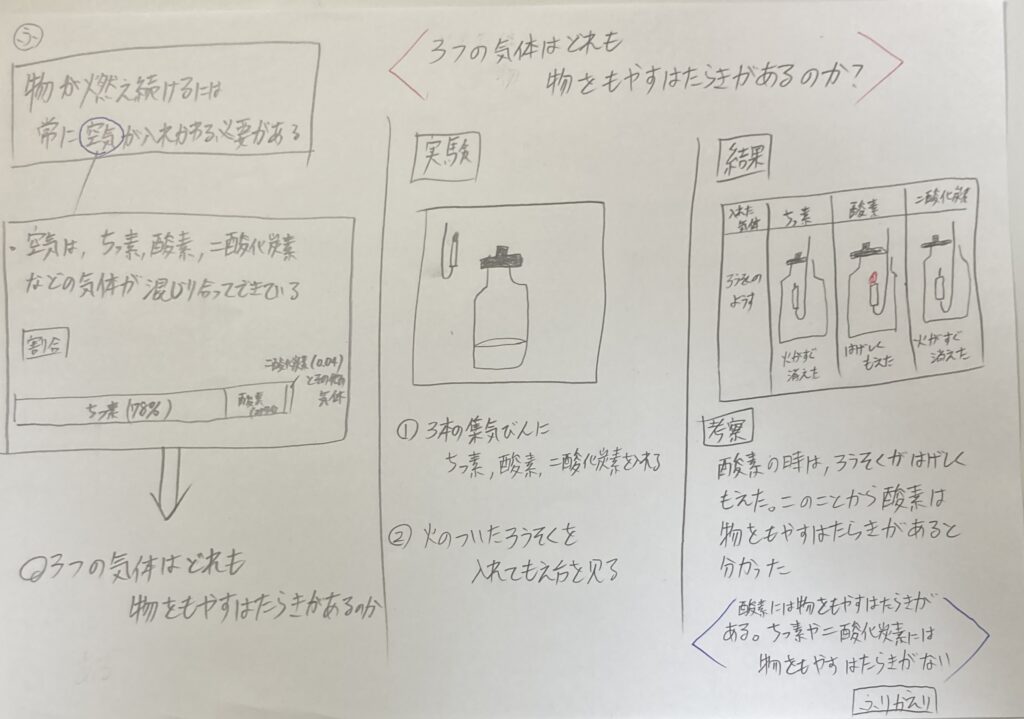 ふ
物が燃え続けるには
常に空気が入れかわる必要がある
・空気は、ちっ素,酸素,二酸化炭素
などの気体が混じり合ってできている
割合
二酸化炭素(0.04)
とその他の
気体
ちっ素(78%)
酸素
Q3つの気体はどれも
物をもやすはたらきがあるのか
3つの気体はどれも
物をもやすはたらきがあるのか?
実験
① 3本の集気びんに
ちっ素,酸素,二酸化炭素を入れる
② 火のついたろうそくを
入れてもえ方を見る
結果
入れた
気体
ちっ素
酸素
二酸化炭素
ろうそくの
ようす
火がすぐ
消えた
はげしく
もえた
火がすぐ
消えた
考察
酸素の時は,ろうそくがはげしく
もえた。このことから酸素は
物をもやすはたらきがあると
分かった
酸素には物をもやすはたらきが
ある。ちっ素や二酸化炭素には
物をもやすはたらきがない
ふりかえり